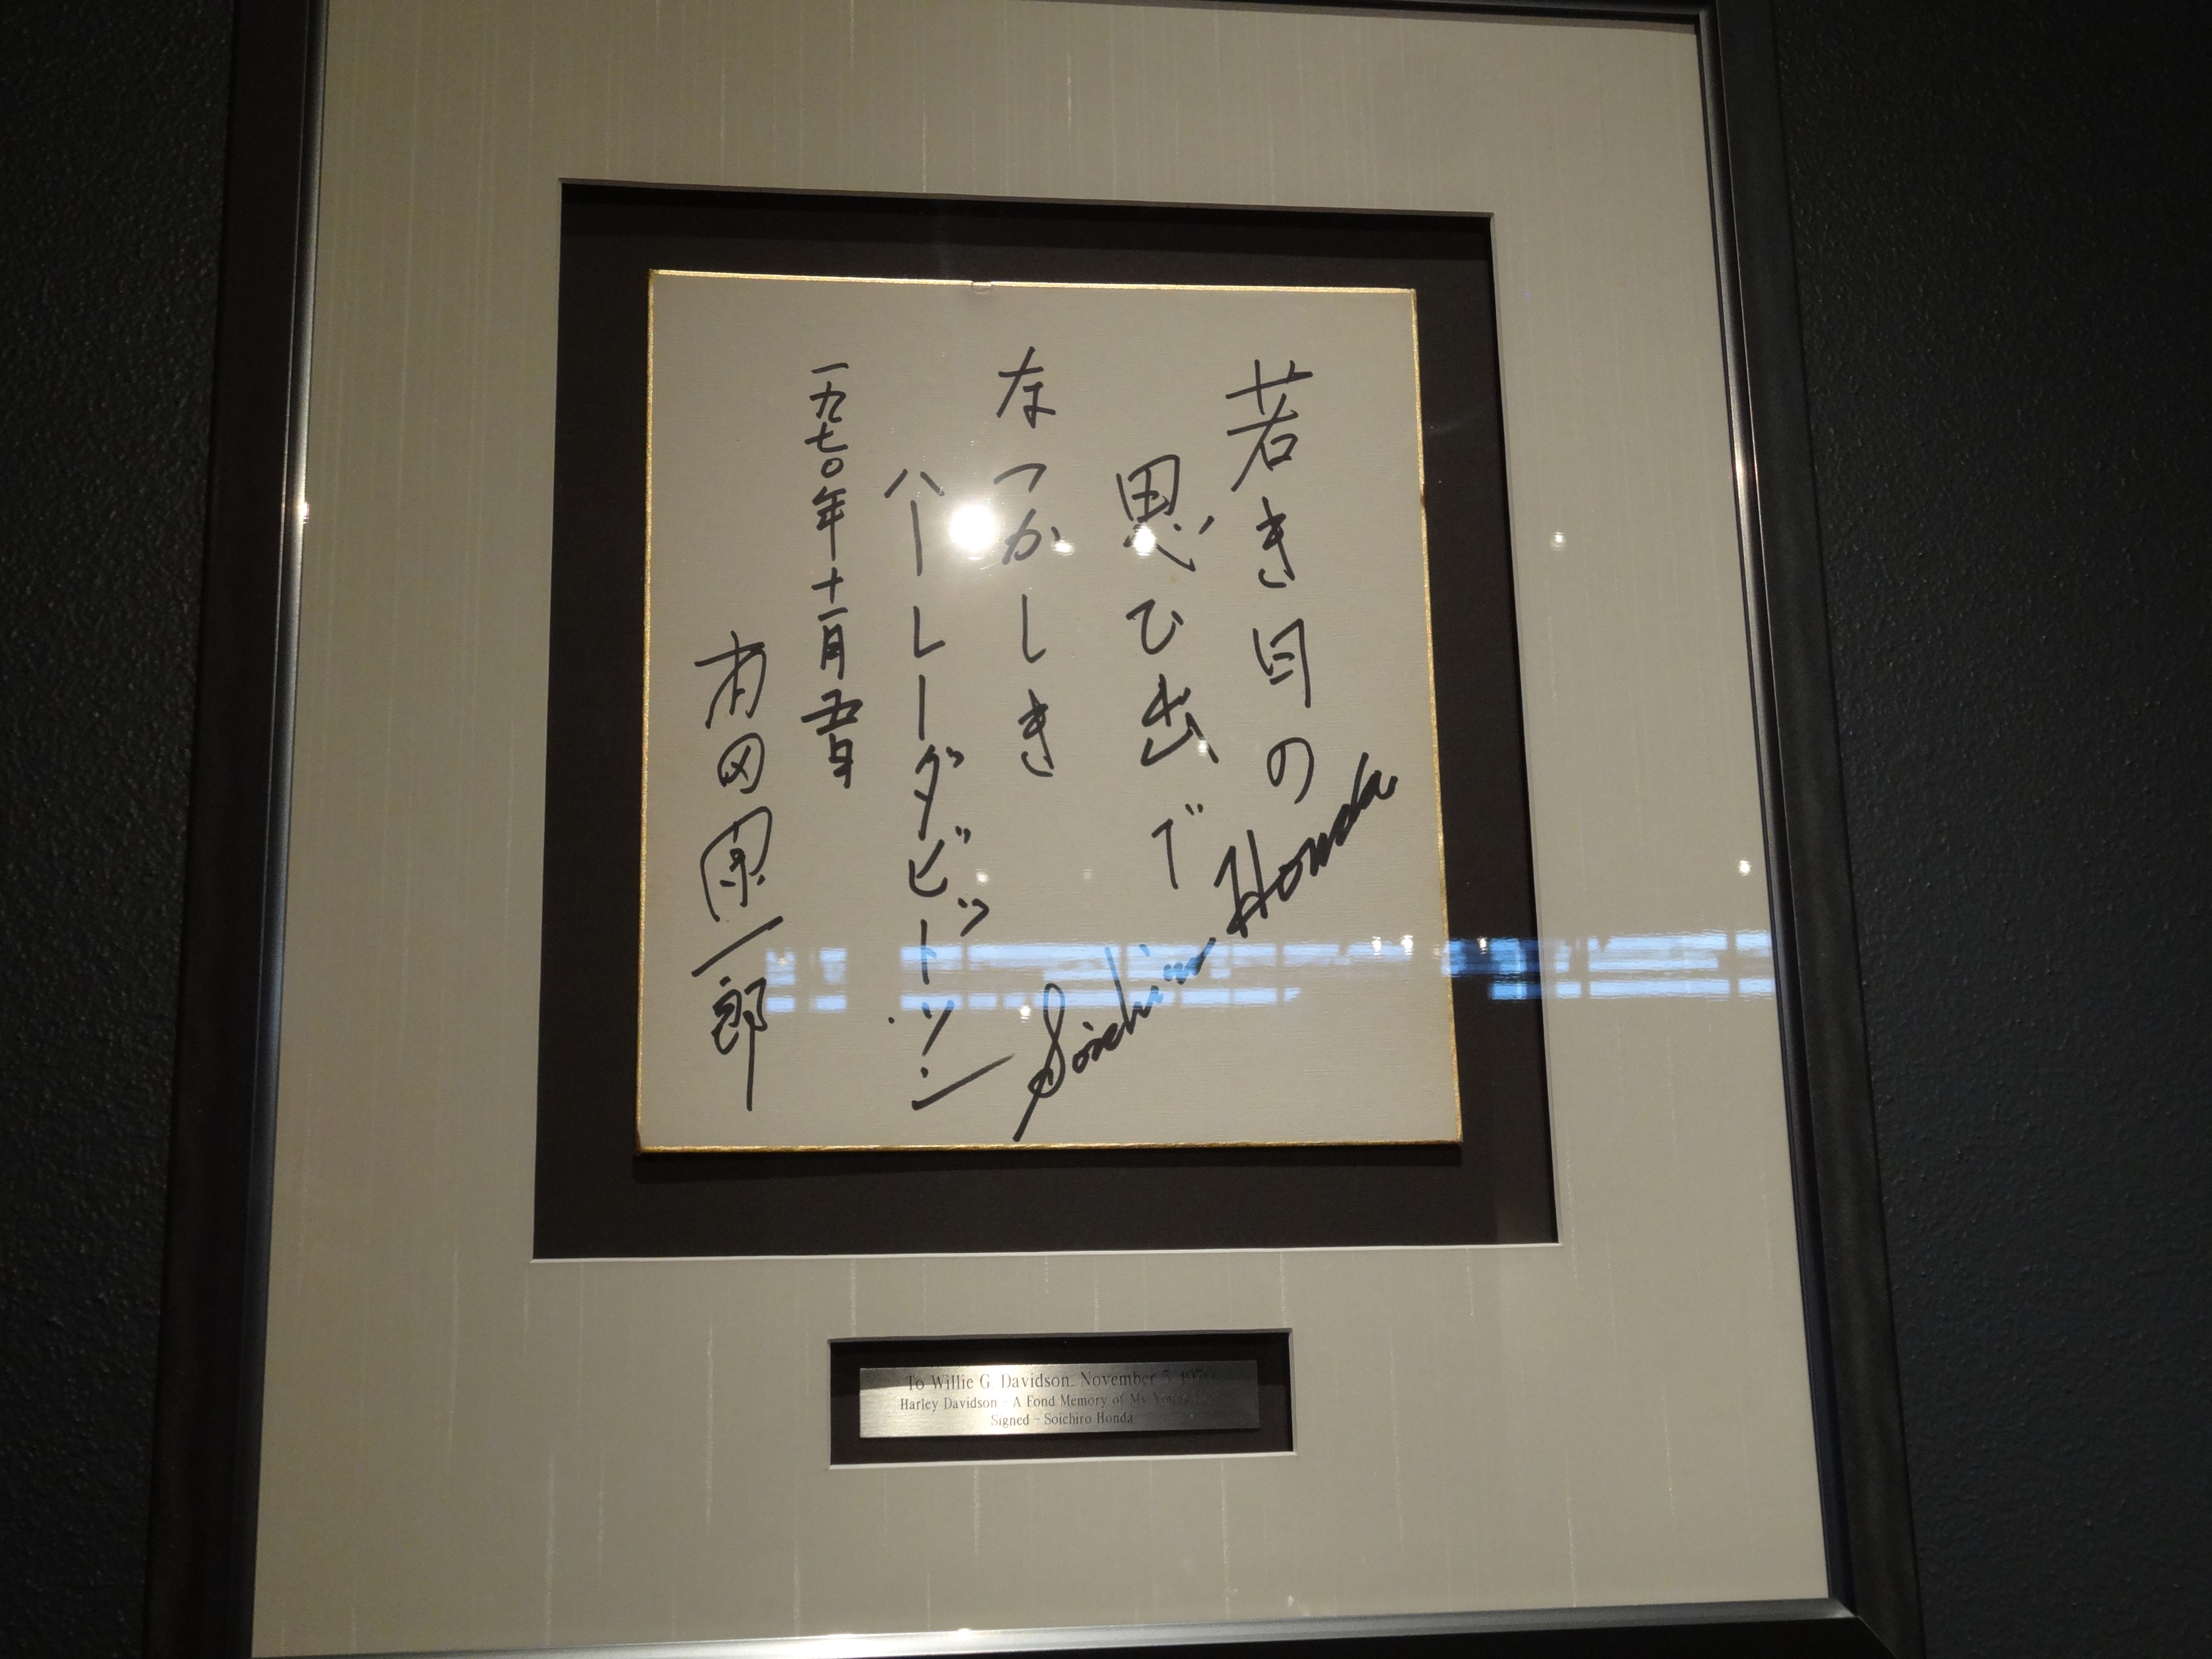 若き日の
思ひ出で
なつかしき
ハーレーダビットソン
一九七〇年十一月五日
本田宗一郎
Soichiro Honda
To Willie G. Davidson, November 5, 1970
Harley Davidson - A Fond Memory of My
Signed - Soichiro Honda